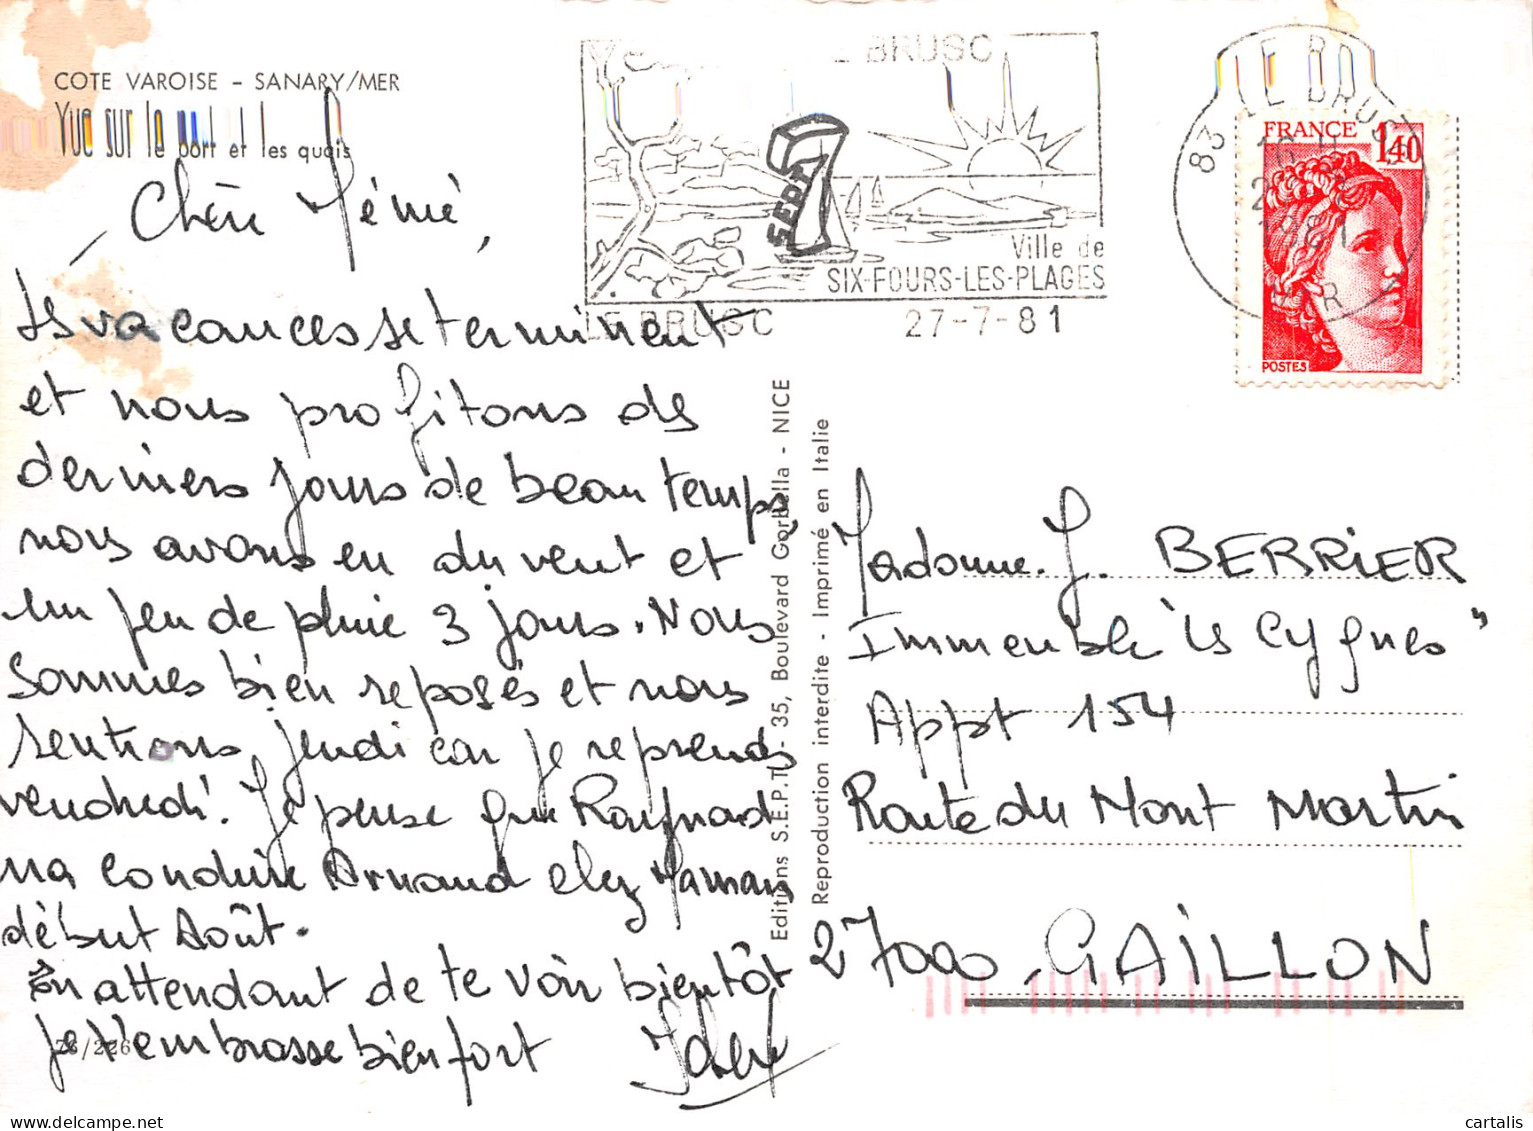 COTE VAROISE – SANARY/MER
Vue sur le port et les quais
Chère Mémé,
Les vacances se terminent
et nous profitons des
derniers jours de beau temps,
nous avons eu du vent et
un peu de pluie 3 jours. Nous
sommes bien reposés et nous
rentrons jeudi car je reprends
vendredi. Je pense que Raynad
va conduire Arnaud chez Maman
début Août.
En attendant de te voir bientôt
je t'embrasse bien fort
76/226
Editions S.E.P.T. - 35, Boulevard Gorbella - NICE
Reproduction interdite - Imprimé en Italie
LE BRUSC
SEPT
Ville de
SIX-FOURS-LES-PLAGES
LE BRUSC 27-7-81
83 LE BRUSC
16 H
1981
VAR
FRANCE 1,40
POSTES
Madame J. BERRIER
Immeuble "les Cygnes"
Appt 154
Route du Mont Martin
27000 GAILLON